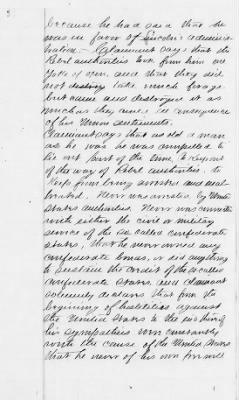 because he had said that he
was in favor of Lincoln's adminis-
tration - Claimant says that the
Rebel authorities took from him one
yoke of oxen, and that they did
not destroy take much forage
but came and destroyed it as
much as they could in consequence
of his Union sentiments.
Claimant says that as old a man
as he was he was compelled to
lie out part of the time, to keep out
of the way of Rebel authorities, to
keep from being arrested and mal-
treated. Never was arrested by United
States authorities. Never was connected
with either the civil or military
service of the so called confederate
states, that he never owned any
confederate bonds, or did anything
to sustain the credit of the so called
confederate states, and claimant
solemnly declares that from the
beginning of hostilities against
the United States to the end thereof
his sympathies were constantly
with the cause of the United States
that he never of his own free will